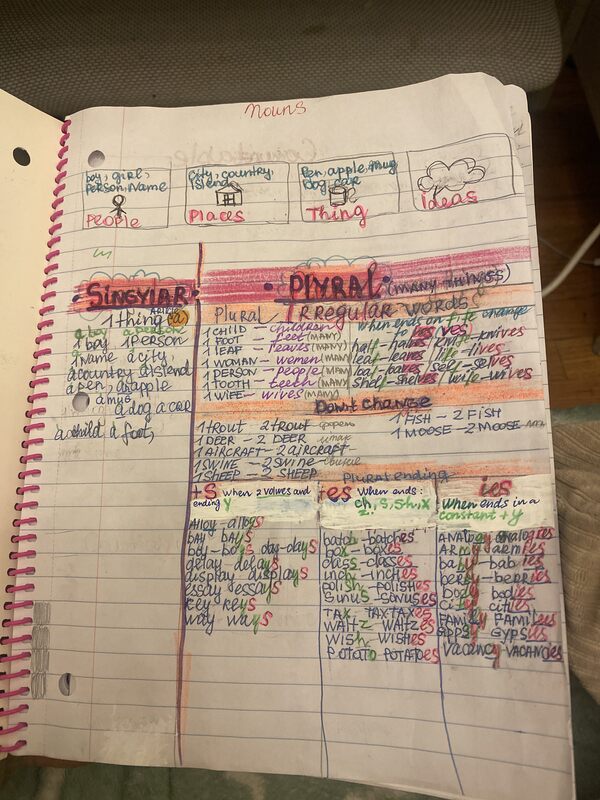 Nouns
boy, girl,
person, Name
People
City, country,
Island
Places
Pen, apple, mug
Dog car
Thing
Ideas
SINGYLAR
1 thing (a)
a boy a person
1 boy 1 person
1 name a city,
a country a island
a pen, an apple
a mug
a dog a car
a child a foot,
PLYRAL (MANY THINGS)
Plural Irregular words
1 CHILD – children
1 FOOT – feet (MANY)
1 LEAF – leaves (MANY)
1 WOMAN – women (MANY)
1 PERSON – people (MANY)
1 TOOTH – teeth (MANY)
1 WIFE – wives (MANY)
when ends on f/fe change
to (es) ves)
half-halves knife-knives
leaf-leaves / life-lives
loaf-loaves / self-selves
shelf-shelves / wife-wives
Downt change
1 TROUT – 2 TROUT форель
1 DEER – 2 DEER
1 AIRCRAFT – 2 AIRCRAFT
1 SWINE – 2 SWINE
1 SHEEP – 2 SHEEP
1 FISH – 2 FISH
1 MOOSE – 2 MOOSE
Plural ending
+s when 2 values and
ending y
Alloy alloys
bay bays
boy-boys day-days
delay delays
display displays
essay essays
key keys
way ways
+es When ends:
ch, s, sh, x
z.
batch-batches
box-boxes
class-classes
inch-inches
polish-polishes
sinus-sinuses
TAX TAXES
WALTZ WALTZES
WISH WISHES
POTATO POTATOES
ies
When ends in a
constant + y
ANALOGY analogies
ARMY armies
baby babies
berry-berries
body bodies
city cities
FAMILY FAMILIES
GYPSY GYPSIES
Vacancy VACANCIES